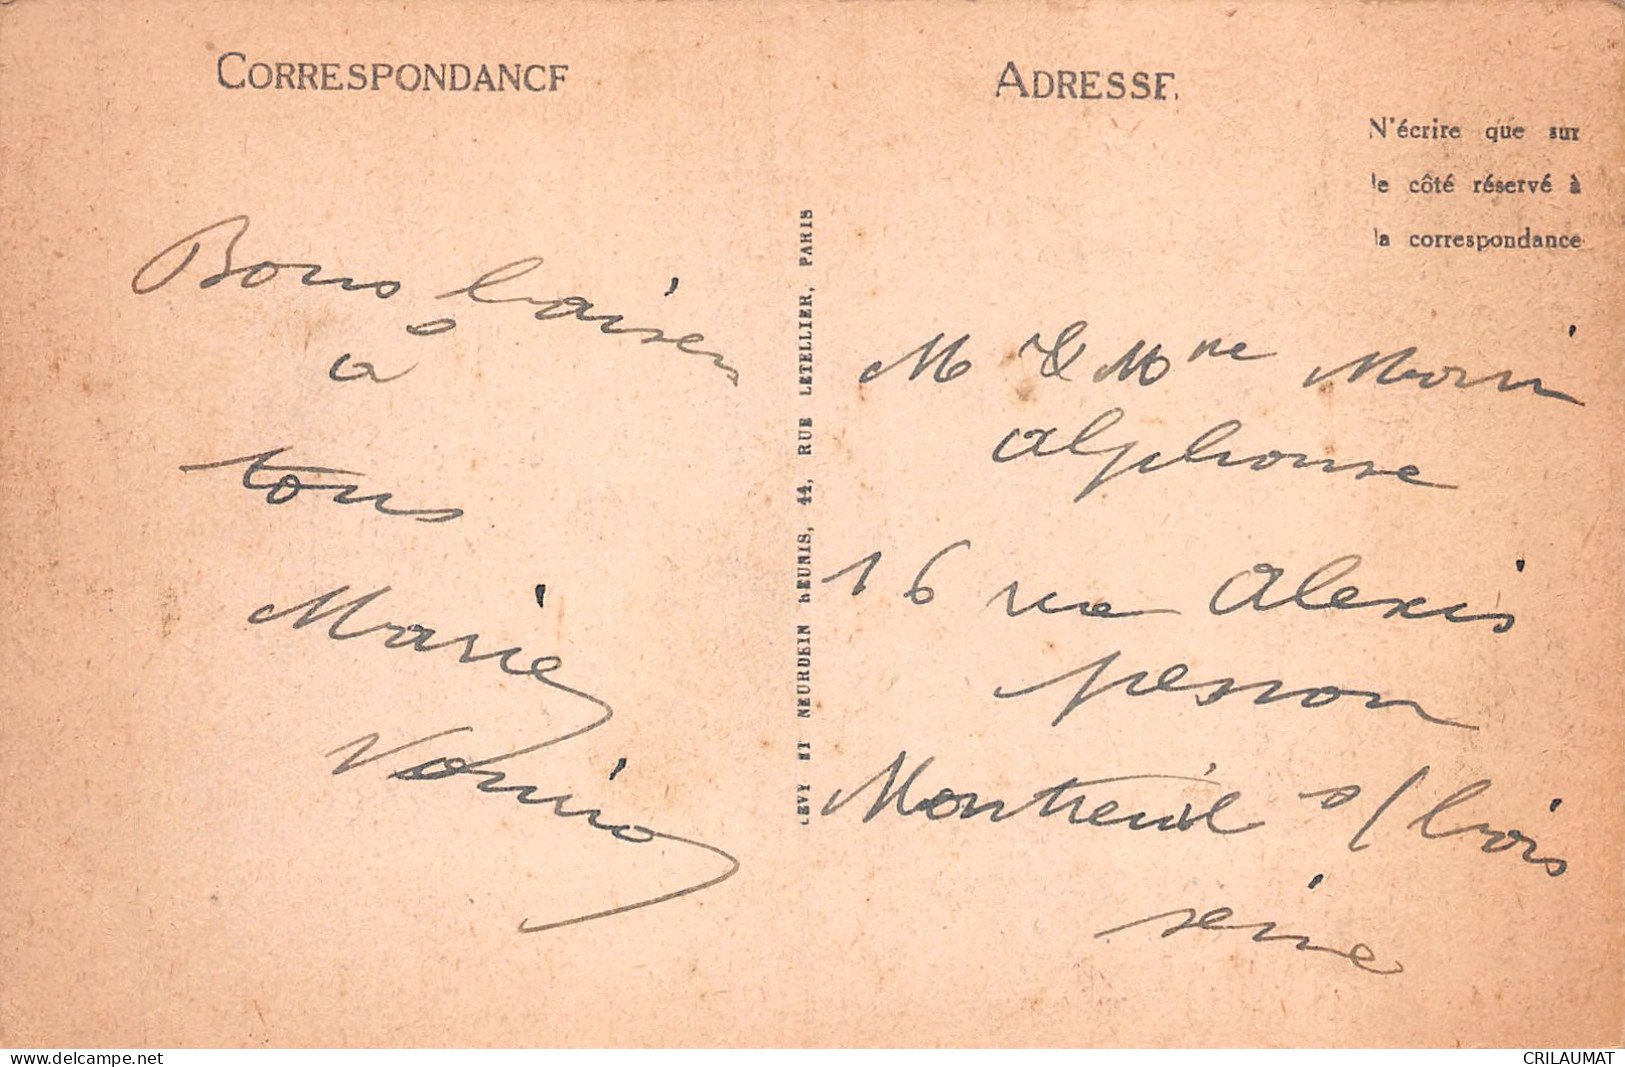 CORRESPONDANCE
Bons baisers
à
tous
Marie
LEVY ET NEURDEIN REUNIS, 44, RUE LETELLIER, PARIS
ADRESSE.
N'écrire que sur
le côté réservé à
la correspondance
M & Mme Morin
alphonse
16 rue Alexis
pesnon
Montreuil s/bois
seine
delcampe.net
CRILAUMAT